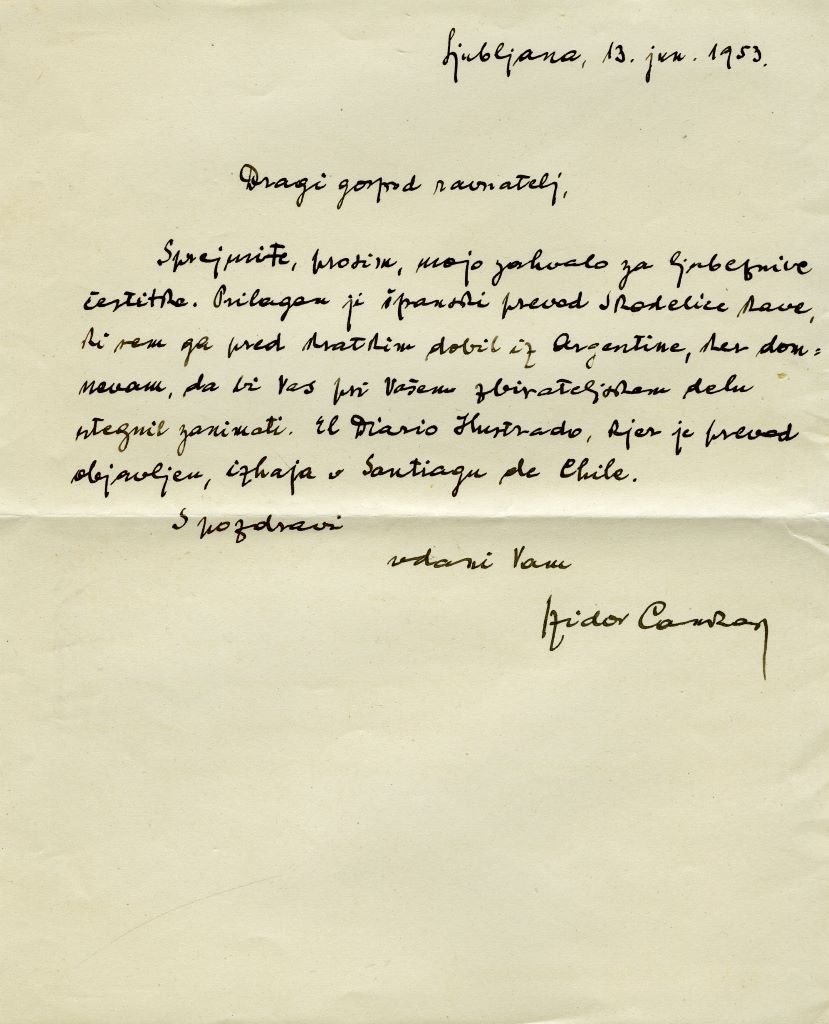 Ljubljana, 13. jun. 1953.
Dragi gospod ravnatelj,
Sprejmite, prosim, mojo zahvalo za ljubeznive
čestitke. Prilagam ji španski prevod Skodelice kave,
ki sem ga pred kratkim dobil iz Argentine, ker dom=
nevam, da bi Vas pri Vašem zbirateljskem delu
utegnil zanimati. El Diario Ilustrado, kjer je prevod
objavljen, izhaja v Santiagu de Chile.
S pozdravi
vdani Vam
Izidor Cankar